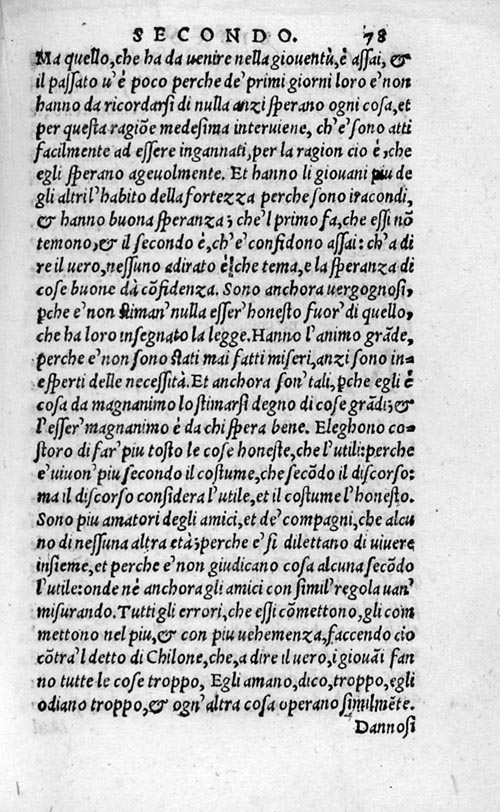 SECONDO. 78
Ma quello, che ha da uenire nella giouentù, è assai, &
il passato u'è poco perche de' primi giorni loro e' non
hanno da ricordarsi di nulla anzi sperano ogni cosa, et
per questa ragiõe medesima interuiene, ch'e' sono atti
facilmente ad essere ingannati, per la ragion cio è, che
egli sperano ageuolmente. Et hanno li giouani piu de
gli altri l'habito della fortezza perche sono iracondi,
& hanno buona speranza; che'l primo fa, che essi nõ
temono, & il secondo è, ch'e' confidono assai: ch'a di
re il uero, nessuno adirato è che tema, e la speranza di
cose buone dà cõfidenza. Sono anchora uergognosi,
ꝑche e' non stiman' nulla esser' honesto fuor' di quello,
che ha loro insegnato la legge. Hanno l'animo grãde,
perche e' non sono stati mai fatti miseri, anzi sono in=
esperti delle necessità. Et anchora son' tali, ꝑche egli è
cosa da magnanimo lo stimarsi degno di cose grãdi; &
l'esser' magnanimo è da chi spera bene. Eleghono co=
storo di far' piu tosto le cose honeste, che l'utili: perche
e' uiuon' piu secondo il costume, che secõdo il discorso:
ma il discorso considera l'utile, et il costume l'honesto.
Sono piu amatori degli amici, et de' compagni, che alcu
no di nessuna altra età; perche e' si dilettano di uiuere
insieme, et perche e' non giudicano cosa alcuna secõdo
l'utile: onde nè anchora gli amici con simil' regola uan'
misurando. Tutti gli errori, che essi cõmettono, gli com
mettono nel piu, & con piu uehemenza, faccendo cio
cõtra'l detto di Chilone, che, a dire il uero, i giouãi fan
no tutte le cose troppo, Egli amano, dico, troppo, egli
odiano troppo, & ogn'altra cosa operano similmẽte.
Dannosi